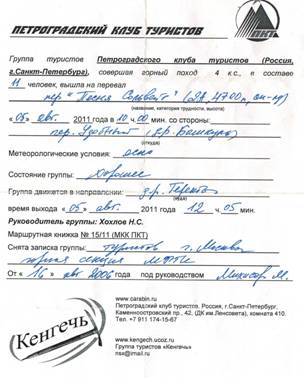 ПЕТРОГРАДСКИЙ КЛУБ ТУРИСТОВ
ПКТ
Группа туристов Петроградского клуба туристов (Россия,
г.Санкт-Петербург), совершая горный поход 4 к.с., в составе
11 человек, вышла на перевал
пер. "Песня Сольвейг" (2А, 4700 м,
(название, категория трудности, высота)
«05» авг 2011 в 10 ч 00 мин со стороны:
пер. Удобный (
(откуда)
Метеорологические условия: ясно
Состояние группы: хорошее
Группа движется в направлении:
(куда)
время выхода «05» авг. 2011 12 ч. 05 мин.
Руководитель группы: Хохлов Н.С.
Маршрутная книжка № 15/11 (МКК ПКТ)
Снята записка группы: туристов г. Москва
горная секция МФТИ
От «16» авг 2006 под руководством М.
www.carabin.ru
Петроградский клуб туристов. Россия, г.Санкт-Петербург,
Каменноостровский пр., 42, (ДК им.Ленсовета), комната 410.
Тел. +7 911 174-15-67
www.kengech.ucoz.ru
Группа туристов «Кенгечь»
nsx@imail.ru
Кенгечь